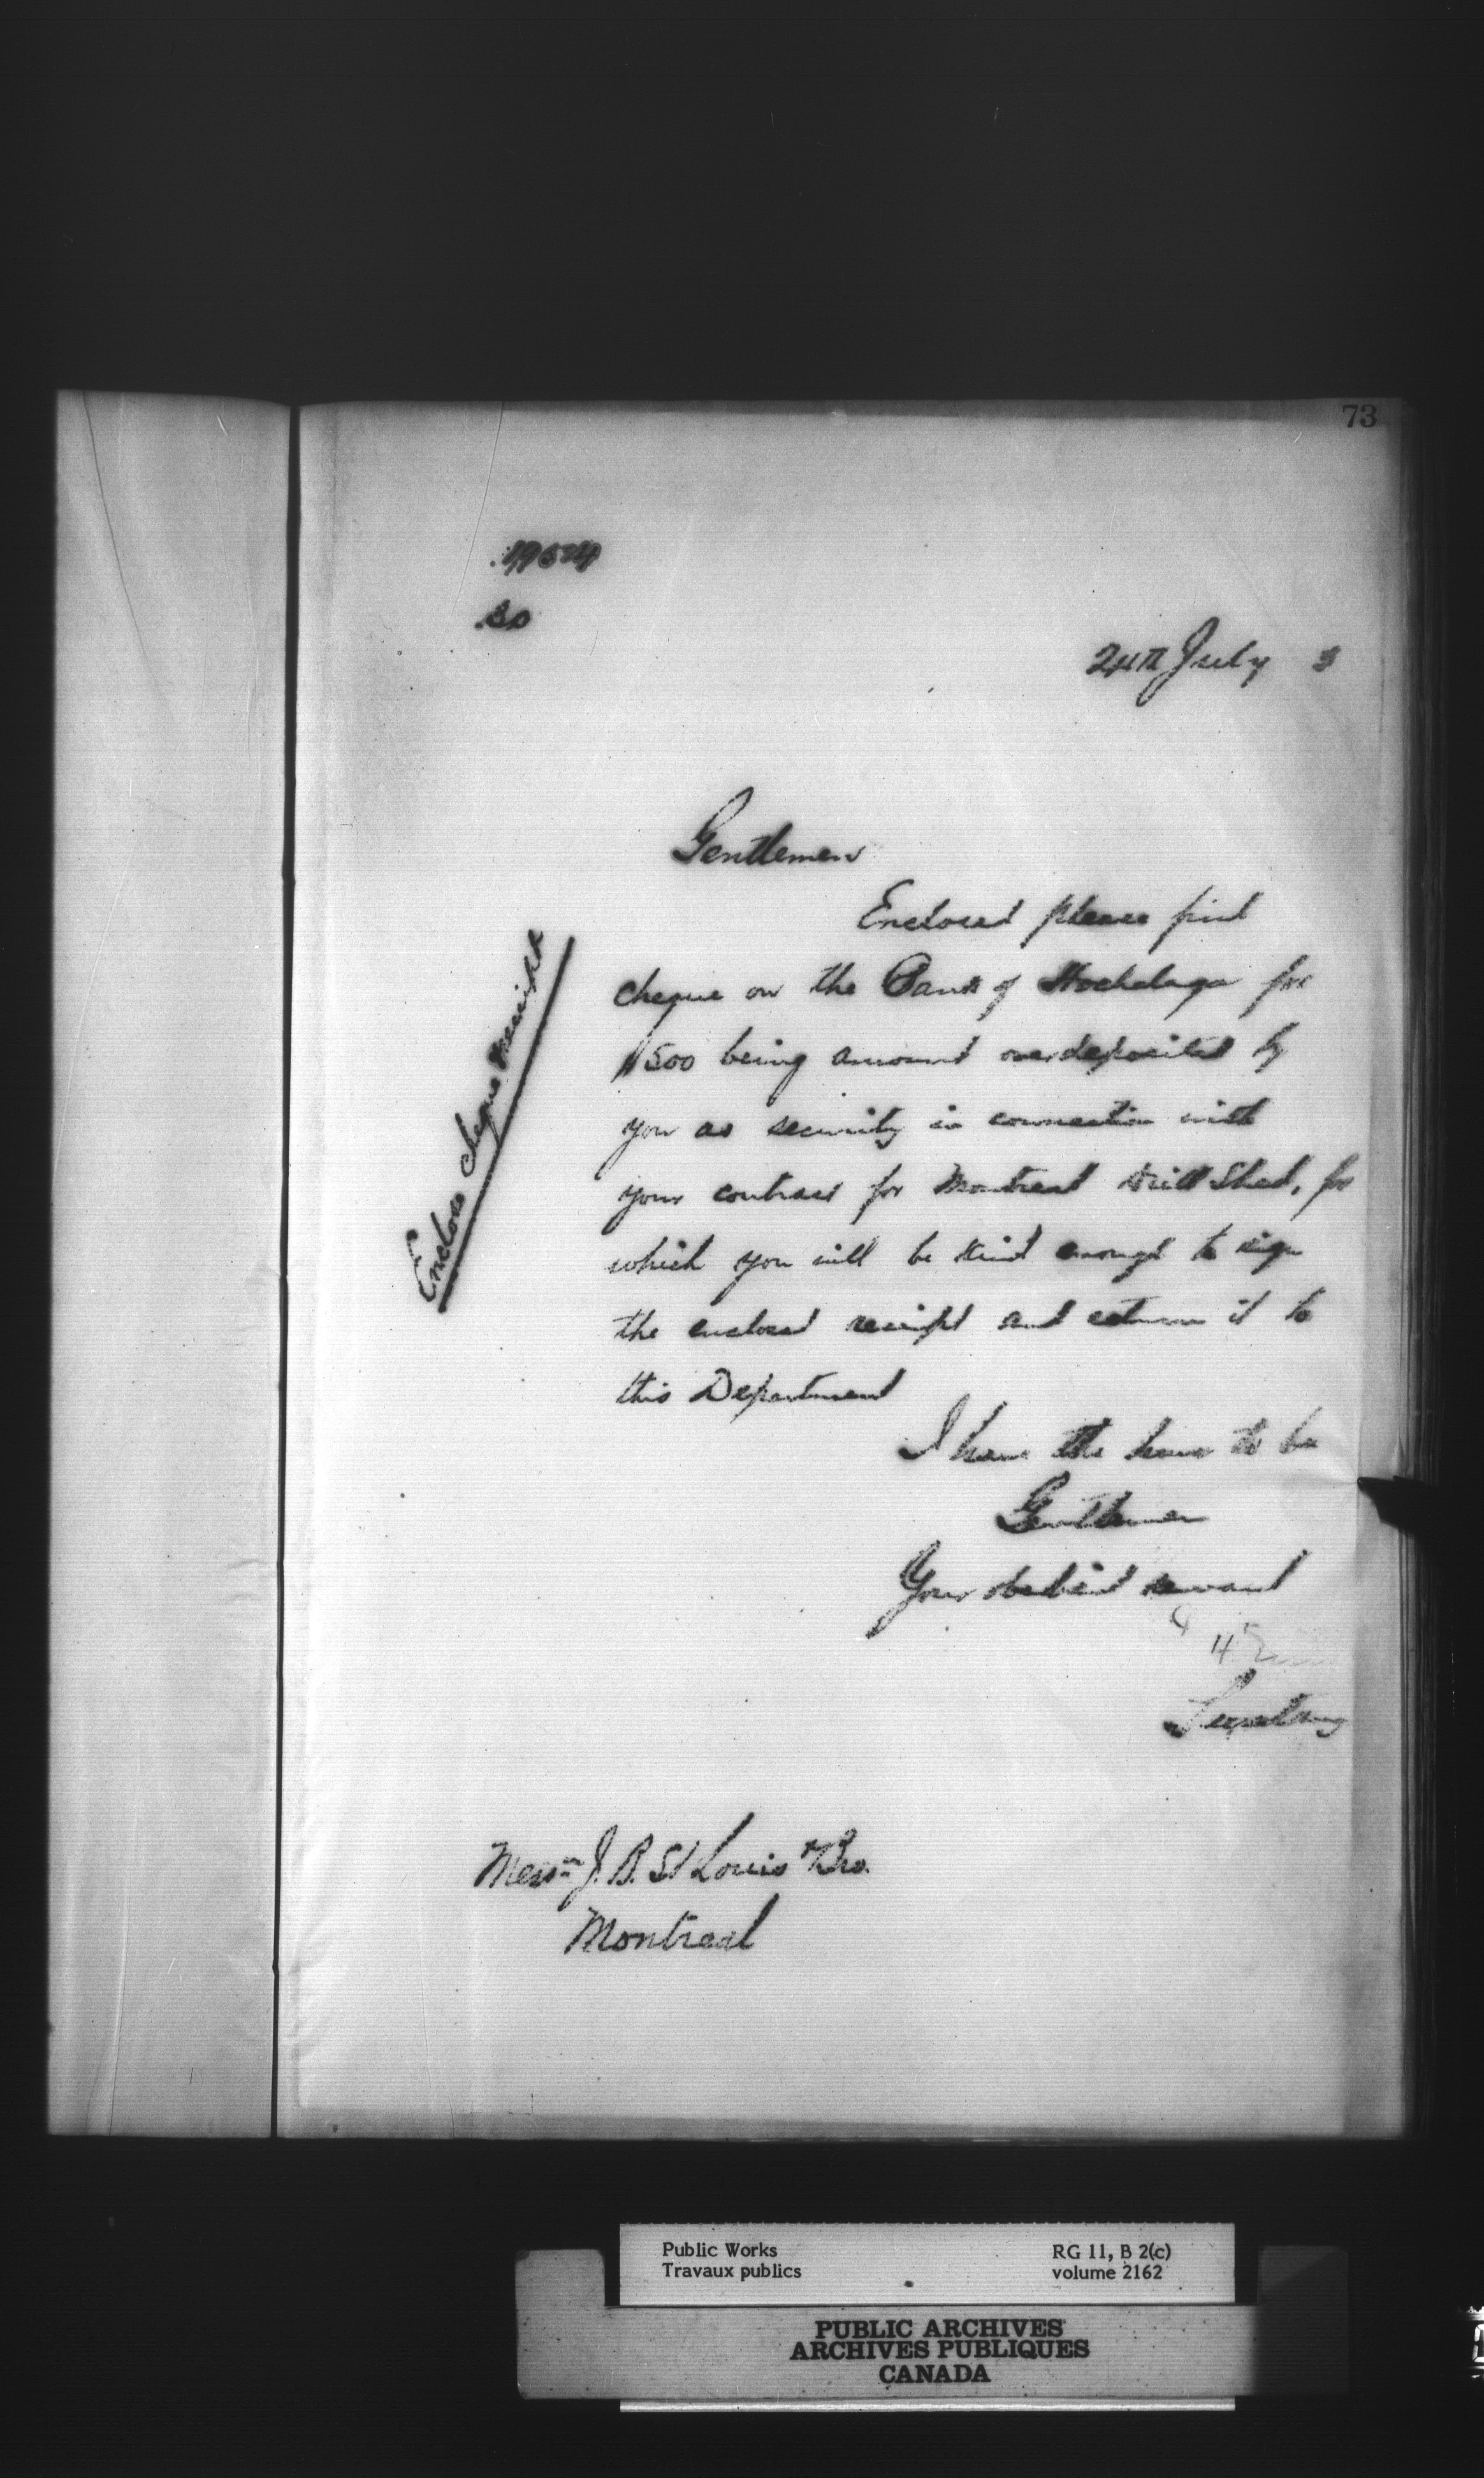 73
24th July 3
Gentlemen
Enclosed please find
cheque on the Bank of Hochelaga for
$500 being amount overdeposited by
you as security in connection with
your contract for Montreal Drill Shed, for
which you will be kind enough to sign
the enclosed receipt and return it to
this Department
I have the honor to be
Gentlemen
Your obedient servant
Secretary
Enclose cheque & receipt
Messrs J. B. St Louis & Bro.
Montreal
Public Works
Travaux publics
RG 11, B 2(c)
volume 2162
PUBLIC ARCHIVES
ARCHIVES PUBLIQUES
CANADA